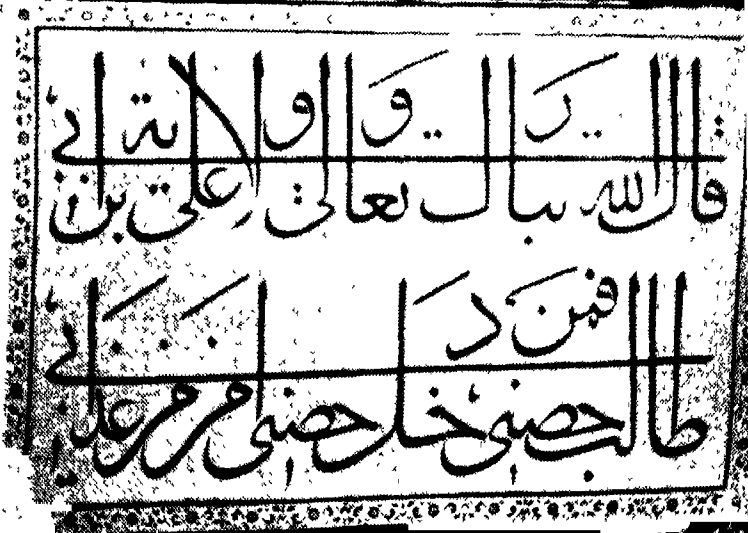 قال الله تبارك و تعالى ولاية علي بن ابي
طالب حصني فمن دخل حصني امن من عذابي